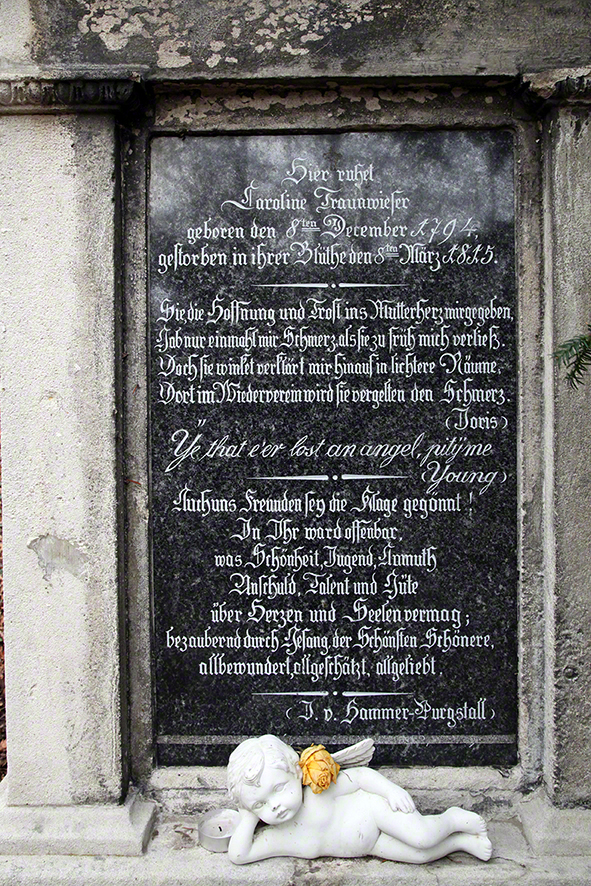 Hier ruhet
Caroline Traunwieser
geboren den 8ten December 1794,
gestorben in ihrer Blüthe den 8ten März 1815.
Sie die Hoffnung und Trost ins Mutterherz mir gegeben,
Gab nur einmahl mir Schmerz, als sie zu früh mich verließ.
Doch sie winket verklärt mir hinauf in lichtere Räume,
Dort im Wiederverein wird sie vergelten den Schmerz.
(Doris)
Ye" that e'er lost an angel, pity me
(Young)
Auch uns Freunden sey die Klage gegönnt!
In Ihr ward offenbar,
was Schönheit, Jugend, Anmuth
Unschuld, Talent und Güte
über Herzen und Seelen vermag;
bezaubernd durch Gesang, der Schönsten Schönere,
allbewundert, allgeschätzt, allgeliebt.
(J. v. Hammer-Purgstall)